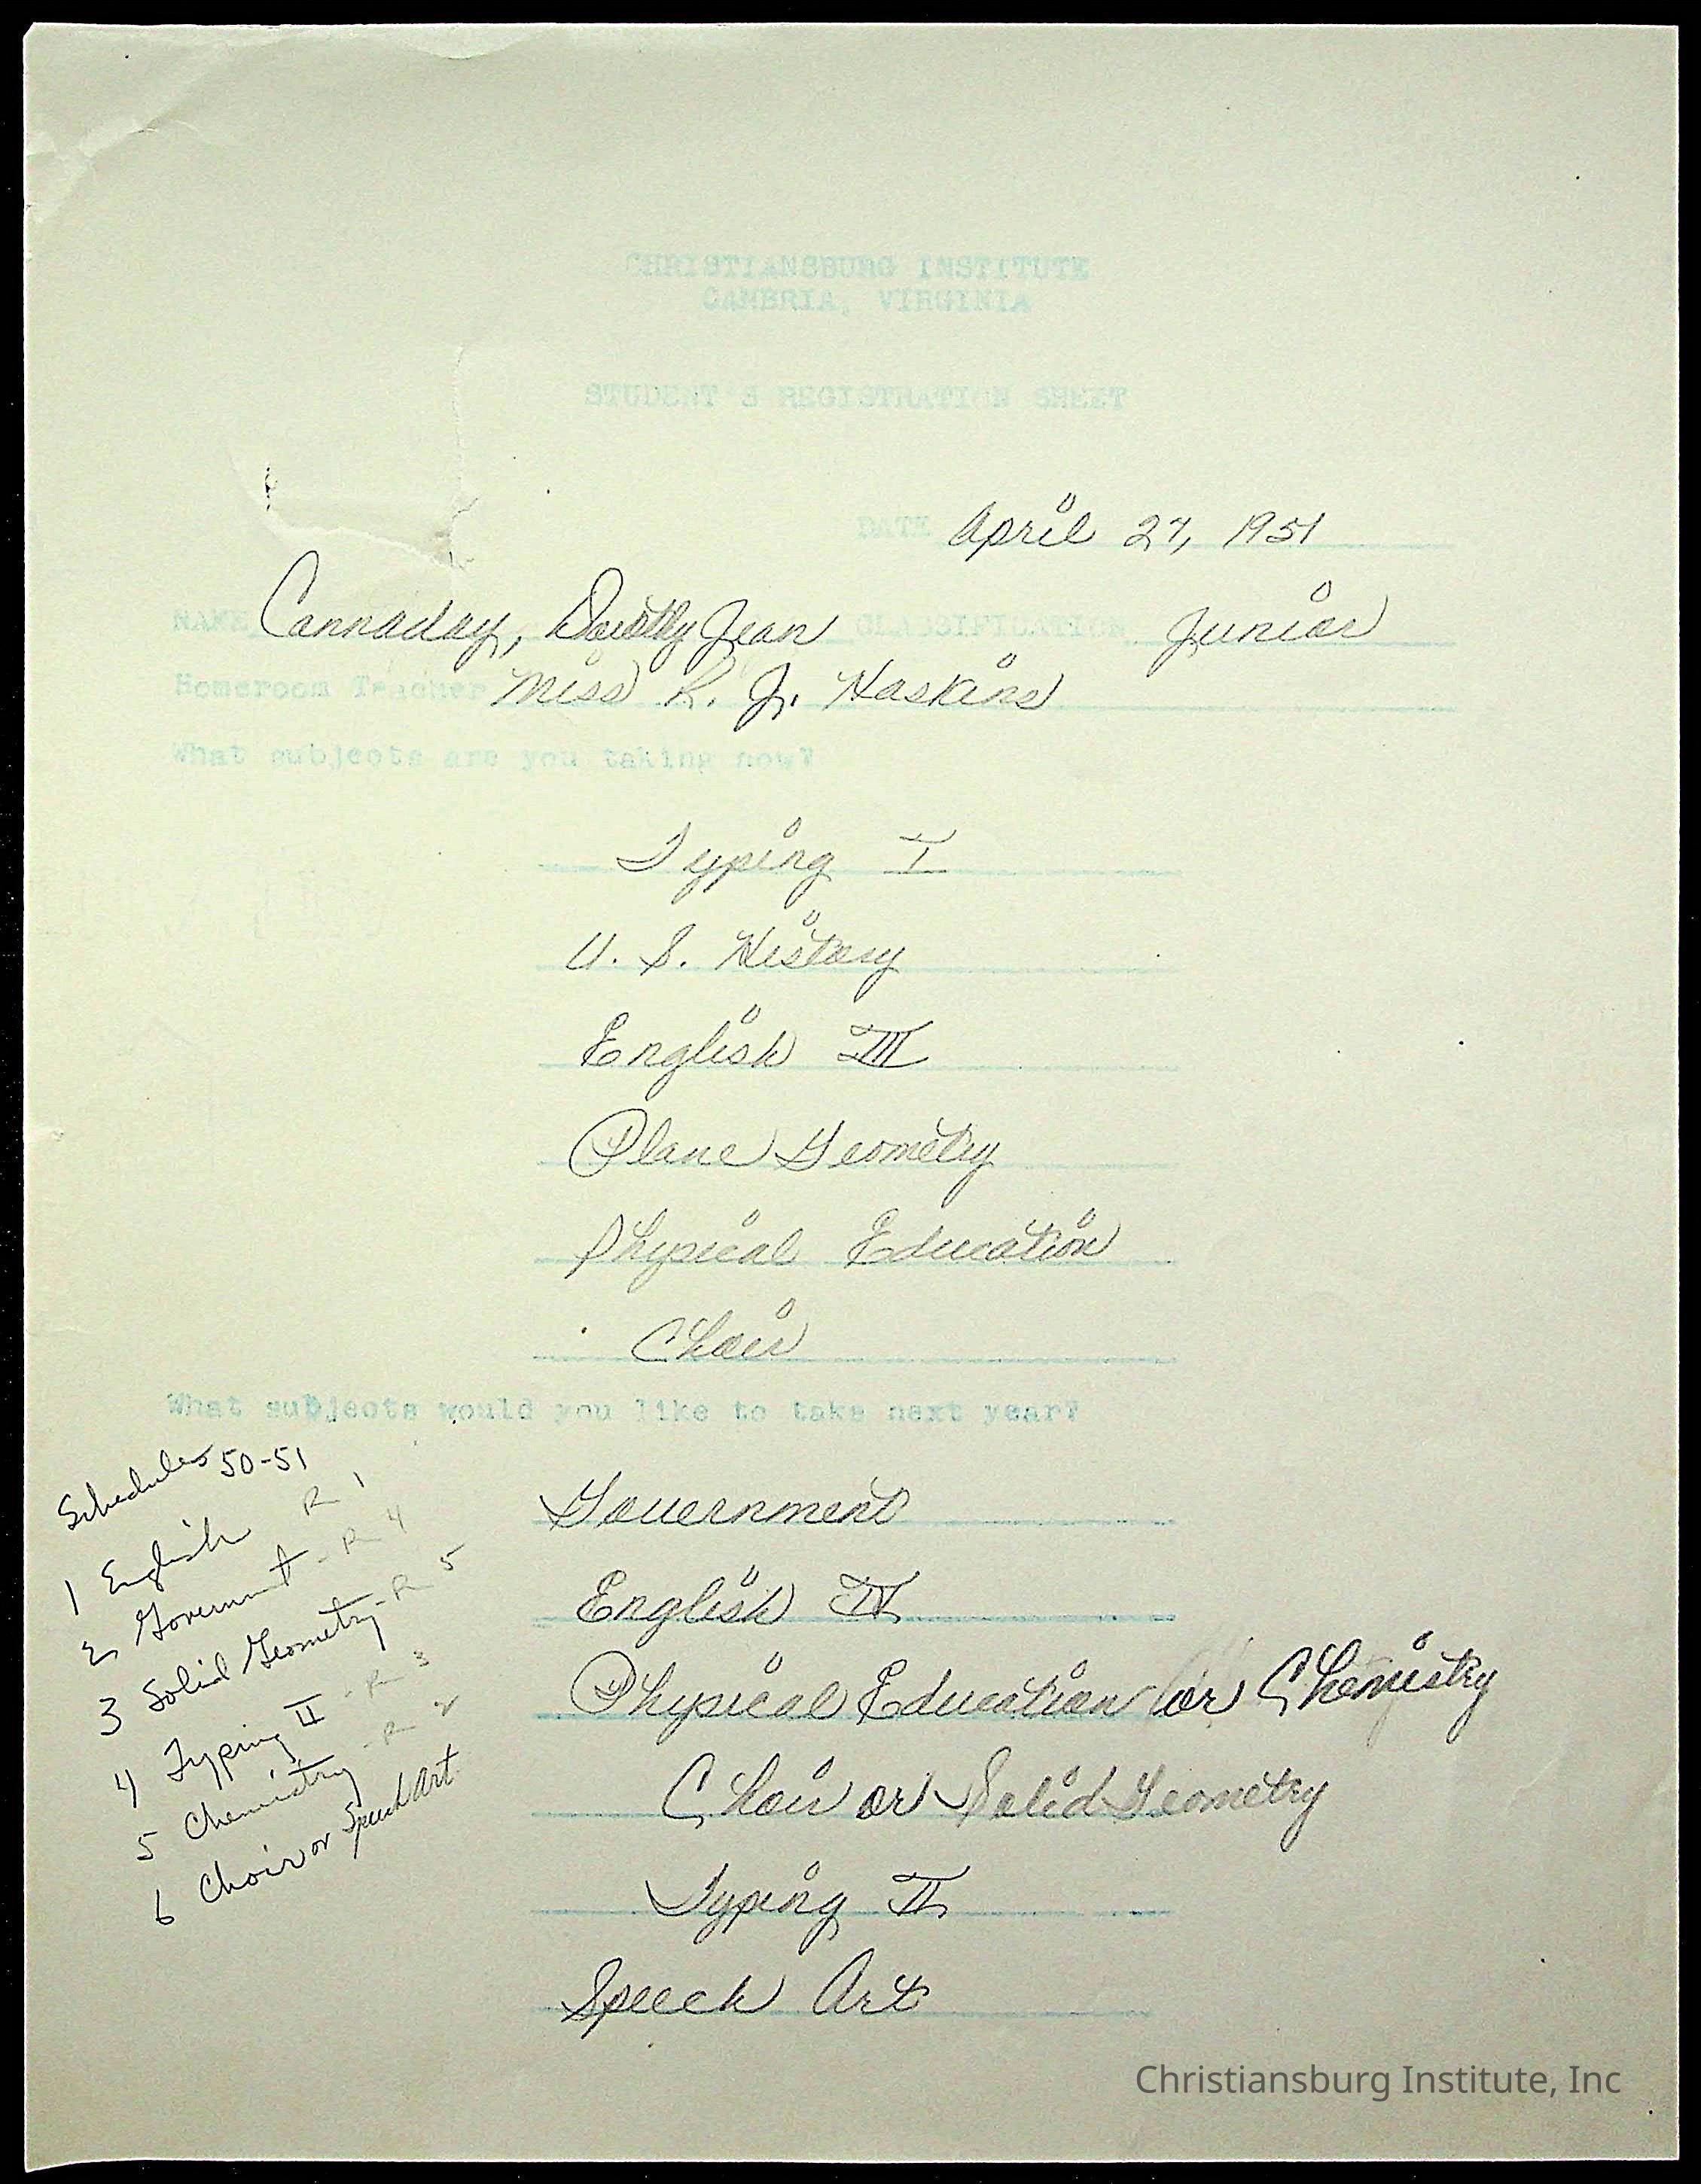 CHRISTIANSBURG INSTITUTE
CAMBRIA, VIRGINIA
STUDENT'S REGISTRATION SHEET
DATE April 27, 1951
NAME Cannaday, Dorothy Jean CLASSIFICATION Junior
Homeroom Teacher Miss R. J. Haskins
What subjects are you taking now?
Typing I
U. S. History
English III
Plane Geometry
Physical Education
Choir
What subjects would you like to take next year?
Government
English IV
Physical Education or Chemistry
Choir or Solid Geometry
Typing II
Speech Art
Schedules 50-51
1 English R 1
2 Government - R 4
3 Solid Geometry - R 5
4 Typing II - R 3
5 Chemistry - R 2
6 Choir or Speech Art
Christiansburg Institute, Inc